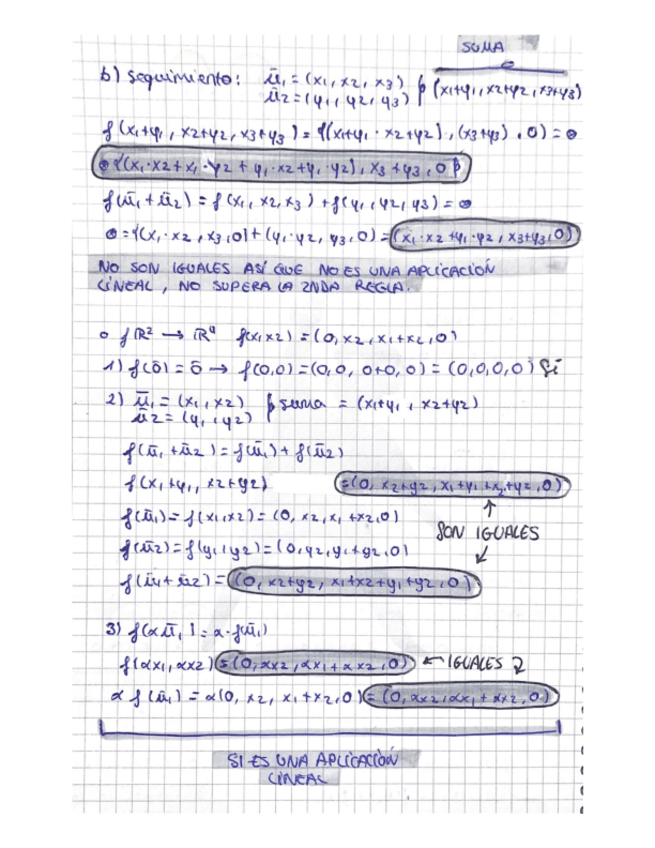 SUMA
b) Seguimiento: ū₁ = (x₁, x₂, x₃) } (x₁+y₁, x₂+y₂, x₃+y₃)
ū₂ = (y₁, y₂, y₃)
f(x₁+y₁, x₂+y₂, x₃+y₃) = {(x₁+y₁ · x₂+y₂), (x₃+y₃), 0} =
{(x₁·x₂+x₁·y₂+y₁·x₂+y₁·y₂), x₃+y₃, 0}
f(ū₁+ū₂) = f(x₁, x₂, x₃) + f(y₁, y₂, y₃) =
= {(x₁·x₂, x₃, 0) + (y₁·y₂, y₃, 0) = (x₁·x₂+y₁·y₂, x₃+y₃, 0)
NO SON IGUALES ASÍ QUE NO ES UNA APLICACIÓN
LINEAL, NO SUPERA LA 2NDA REGLA.
o f ℝ² → ℝ⁴ f(x₁x₂) = (0, x₂, x₁+x₂, 0)
1) f(ō) = ō → f(0,0) = (0,0, 0+0, 0) = (0,0,0,0) Sí
2) ū₁ = (x₁, x₂) } suma = (x₁+y₁, x₂+y₂)
ū₂ = (y₁, y₂)
f(ū₁+ū₂) = f(ū₁) + f(ū₂)
f(x₁+y₁, x₂+y₂) = (0, x₂+y₂, x₁+y₁+x₂+y₂, 0)
f(ū₁) = f(x₁, x₂) = (0, x₂, x₁+x₂, 0)
SON IGUALES
f(ū₂) = f(y₁, y₂) = (0, y₂, y₁+y₂, 0)
f(ū₁+ū₂) = (0, x₂+y₂, x₁+x₂+y₁+y₂, 0)
3) f(αū₁) = α·f(ū₁)
f(αx₁, αx₂) = (0, αx₂, αx₁+αx₂, 0) ← IGUALES
α f(ū₁) = α(0, x₂, x₁+x₂, 0) = (0, αx₂, αx₁+αx₂, 0)
SI ES UNA APLICACIÓN
LINEAL